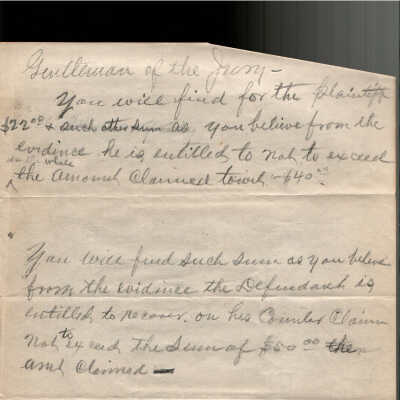 Gentleman of the Jury -
You will find for the plaintiff
$22.00 & such other sum as you believe from the
evidence he is entitled to not to exceed
in the whole
the amount claimed towit - $40.00
You will find such sum as you believe
from the evidence the Defendant is
entitled to recover on his Counter Claim
not to exceed the sum of $50.00 the
amt claimed